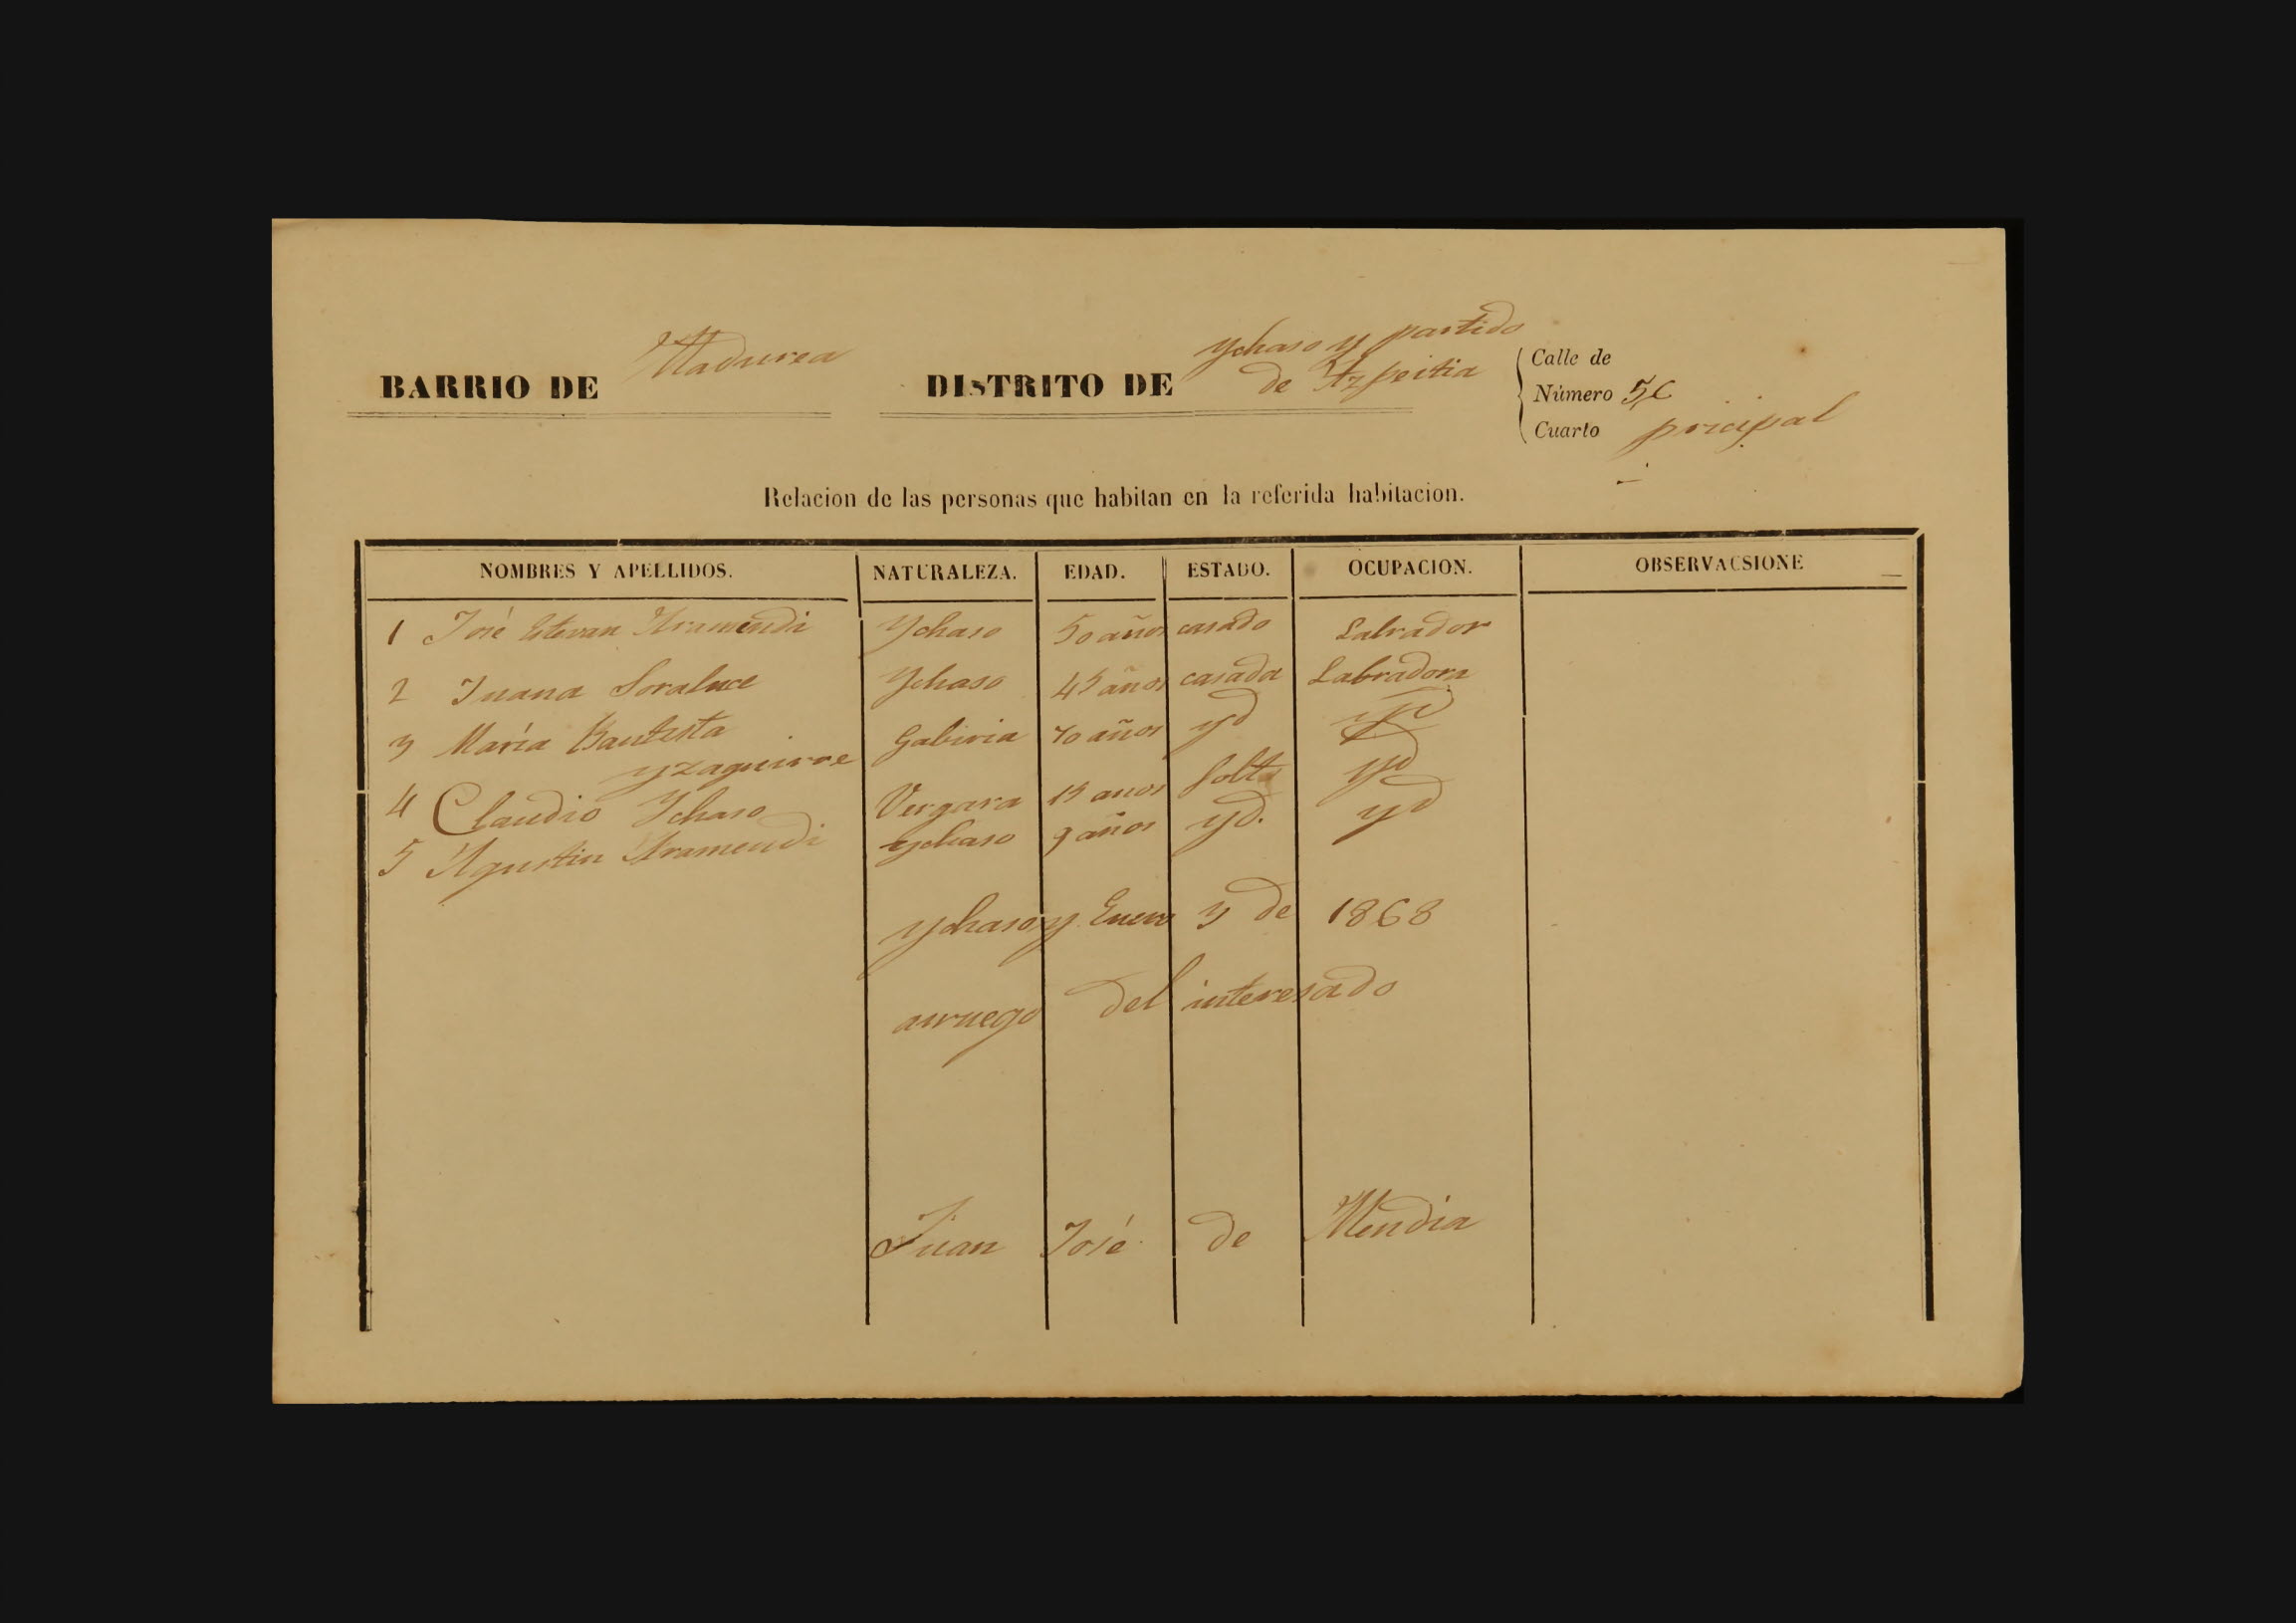 Madurea
Ychaso y partido
BARRIO DE DISTRITO DE de Azpeitia
Calle de
Número 56
Cuarto pricipal
Relacion de las personas que habitan en la referida habitacion.
NOMBRES Y APELLIDOS. NATURALEZA. EDAD. ESTADO. OCUPACION. OBSERVACSIONE
1 José Estevan Aramendi Ychaso 50 años casado Labrador
2 Juana Soraluce Ychaso 45 años casada Labradora
3 María Bautista Gabiria 70 años yd yd
yzaguirre
4 Claudio Ychaso Vergara 15 anos Solto yd
5 Agustin Aramendi Ychaso 9 años yd. yd
ychaso y Enero 3 de 1868
arruego del interesado
Juan José de Mendia